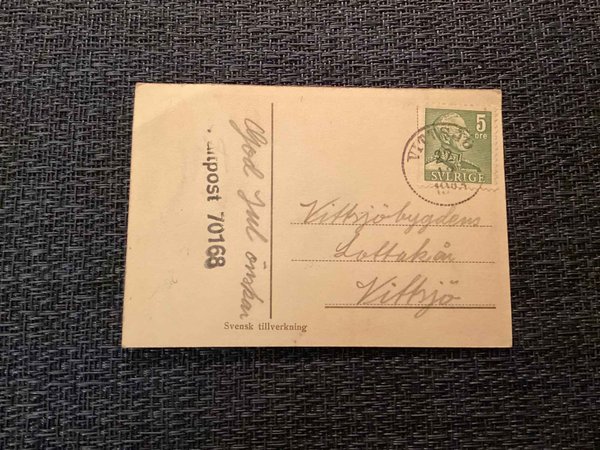 God Jul önskar
Fältpost 70168
Svensk tillverkning
5
öre
SVERIGE
VITTSJÖ
Vittsjöbygdens
Lottakår
Vittsjö